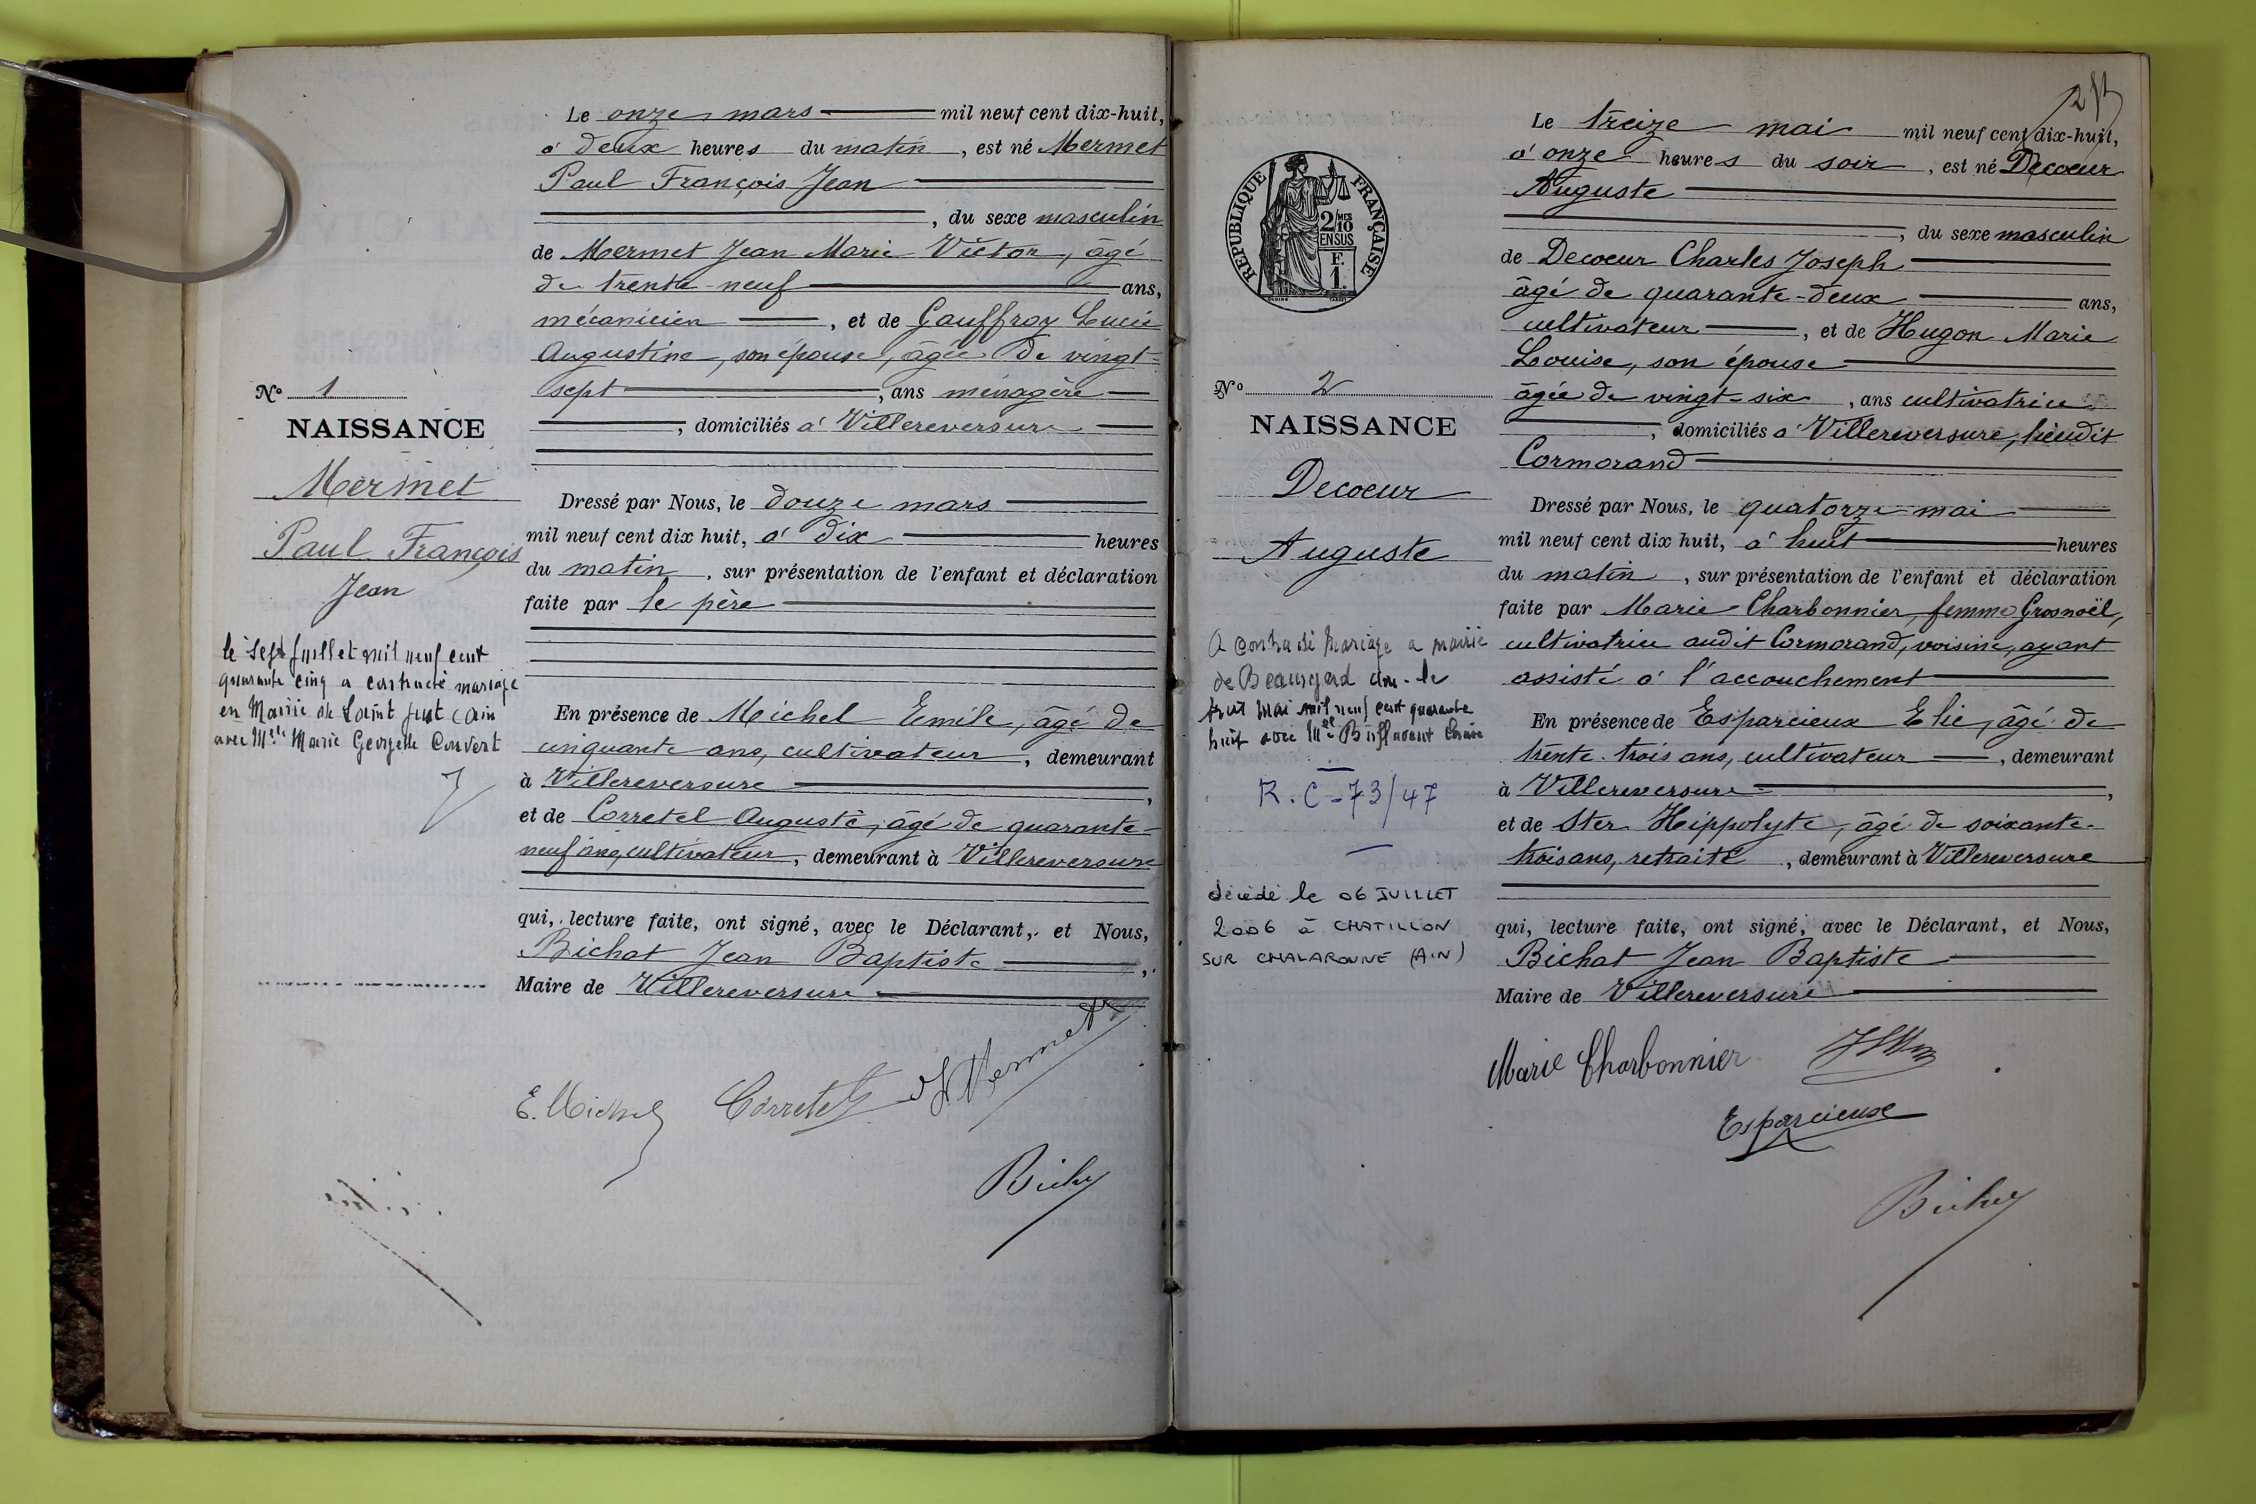 Le onze mars mil neuf cent dix-huit,
à deux heures du matin, est né Mermet
Paul François Jean
, du sexe masculin
de Mermet Jean Marie Victor, âgé
de trente-neuf ans,
mécanicien, et de Gauffroy Lucie
Augustine, son épouse, âgée de vingt-
sept, ans ménagère
, domiciliés à Villereversure
Dressé par Nous, le douze mars
mil neuf cent dix huit, à dix heures
du matin, sur présentation de l'enfant et déclaration
faite par le père
En présence de Michel Emile, âgé de
cinquante ans, cultivateur, demeurant
à Villereversure,
et de Corretel Auguste, âgé de quarante-
neuf ans, cultivateur, demeurant à Villereversure
qui, lecture faite, ont signé, avec le Déclarant, et Nous,
Bichat Jean Baptiste,
Maire de Villereversure
N° 1
NAISSANCE
Mermet
Paul François
Jean
le sept juillet mil neuf cent
quarante cinq a contracté mariage
en Mairie de Saint Just (Ain
avec Melle Marie Georgette Convert
E. Michel Corretel Mermet
Bichat
Le treize mai mil neuf cent dix-huit,
à onze heures du soir, est né Decoeur
Auguste
, du sexe masculin
de Decoeur Charles Joseph
âgé de quarante-deux ans,
cultivateur, et de Hugon Marie
Louise, son épouse
âgée de vingt-six, ans cultivatrice
, domiciliés à Villereversure, lieudit
Cormorand
Dressé par Nous, le quatorze mai
mil neuf cent dix huit, à huit heures
du matin, sur présentation de l'enfant et déclaration
faite par Marie Charbonnier, femme Grosnoël,
cultivatrice audit Cormorand, voisine, ayant
assisté à l'accouchement
En présence de Esparcieux Elie, âgé de
trente-trois ans, cultivateur, demeurant
à Villereversure,
et de Ster Hippolyte, âgé de soixante-
trois ans, retraité, demeurant à Villereversure
qui, lecture faite, ont signé, avec le Déclarant, et Nous,
Bichat Jean Baptiste
Maire de Villereversure
RÉPUBLIQUE FRANÇAISE
2 MES
10
EN SUS
F.
1.
N° 2
NAISSANCE
Decoeur
Auguste
A contracté mariage a mairie
de Beauregard Ain le
huit mai mil neuf cent quarante
huit avec Melle
R.C-73/47
décédé le 06 JUILLET
2006 à CHATILLON
SUR CHALARONNE (AIN)
Marie Charbonnier
Esparcieux
Bichat